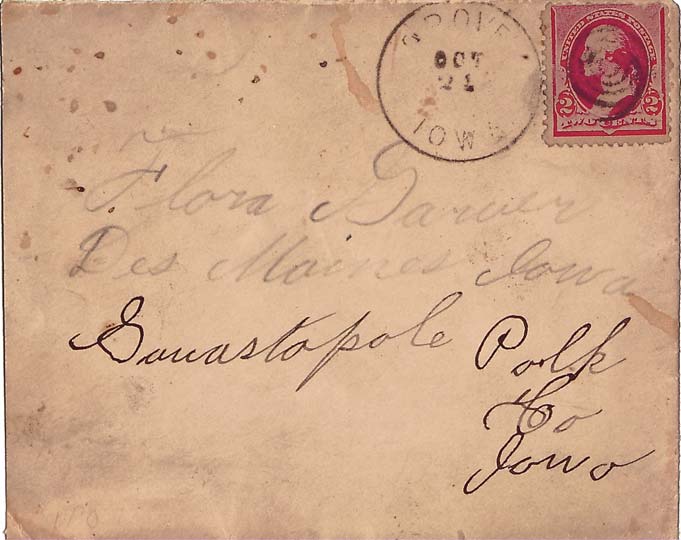 GROVE
OCT
21
IOWA
UNITED STATES POSTAGE
2 2
TWO CENTS
Flora Garver
Des Maines Iowa
Souastopole Polk
Co
Iowo